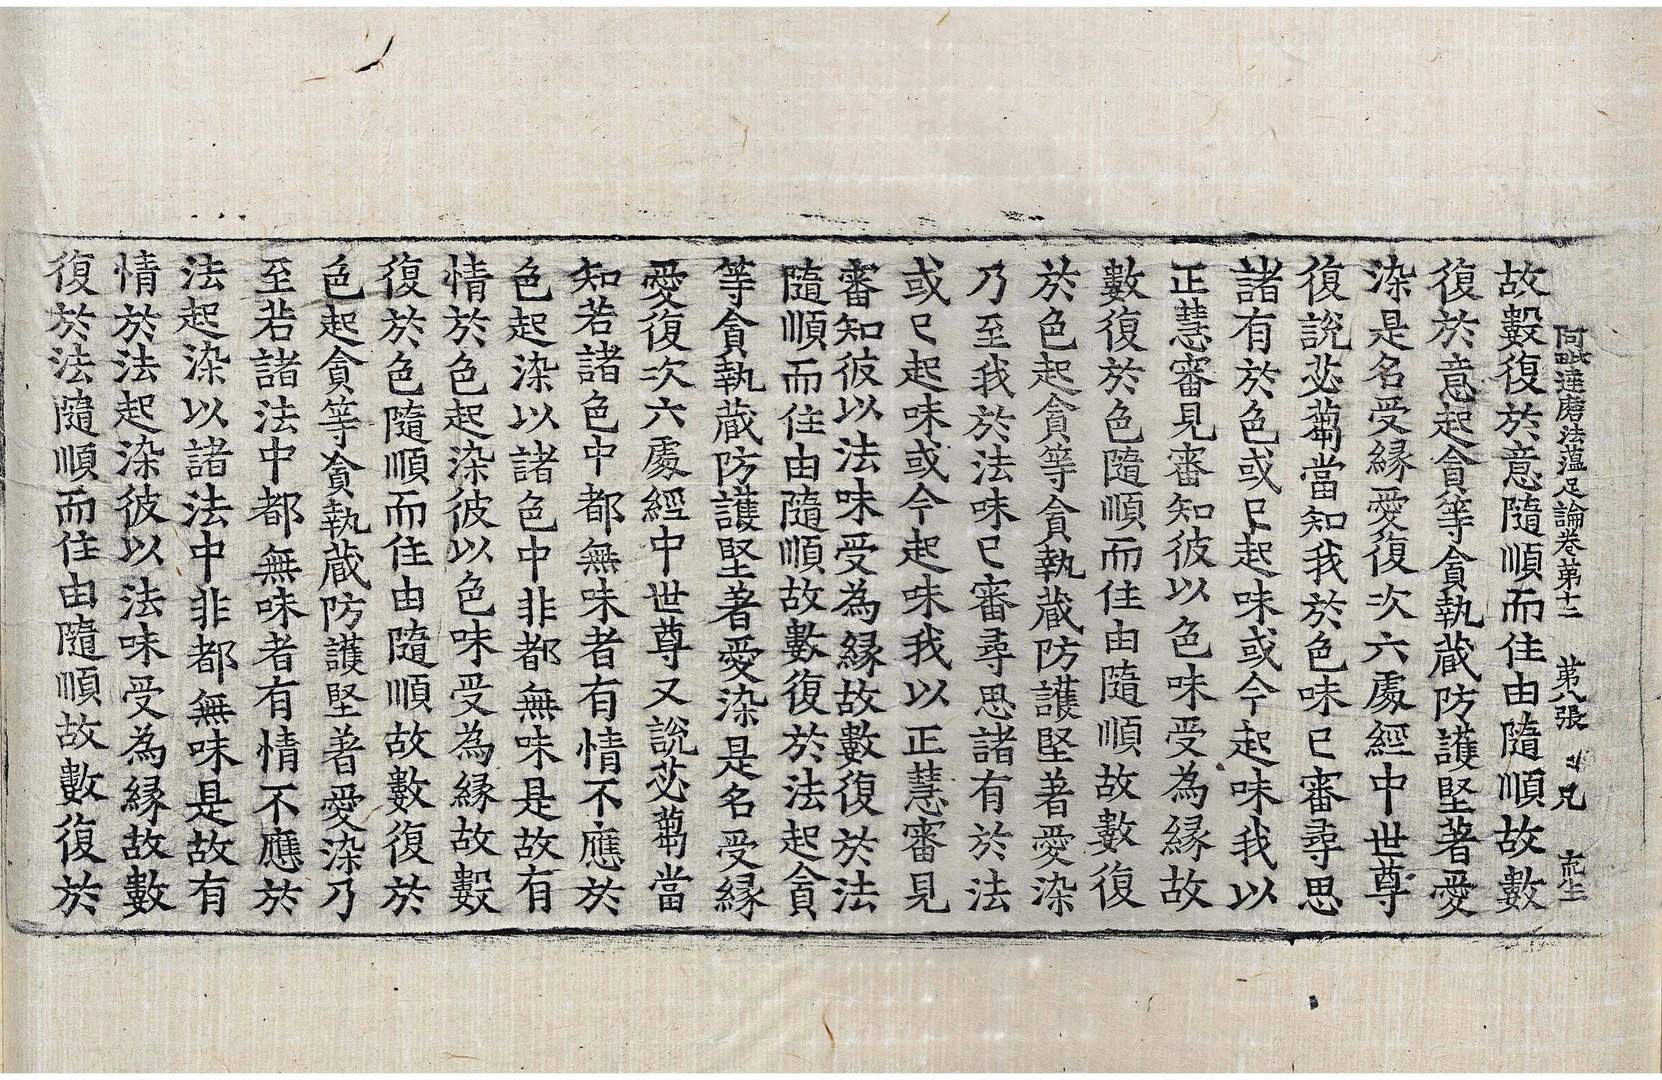 阿毗達磨法蘊足論卷第十二 第八張 兄
故數復於意隨順而住由隨順故數
復於意起貪等貪執藏防護堅著愛
染是名受緣愛復次六處經中世尊
復說苾蒭當知我於色味已審尋思
諸有於色或已起味或今起味我以
正慧審見審知彼以色味受為緣故
數復於色隨順而住由隨順故數復
於色起貪等貪執藏防護堅著愛染
乃至我於法味已審尋思諸有於法
或已起味或今起味我以正慧審見
審知彼以法味受為緣故數復於法
隨順而住由隨順故數復於法起貪
等貪執藏防護堅著愛染是名受緣
愛復次六處經中世尊又說苾蒭當
知若諸色中都無味者有情不應於
色起染以諸色中非都無味是故有
情於色起染彼以色味受為緣故數
復於色隨順而住由隨順故數復於
色起貪等貪執藏防護堅著愛染乃
至若諸法中都無味者有情不應於
法起染以諸法中非都無味是故有
情於法起染彼以法味受為緣故數
復於法隨順而住由隨順故數復於